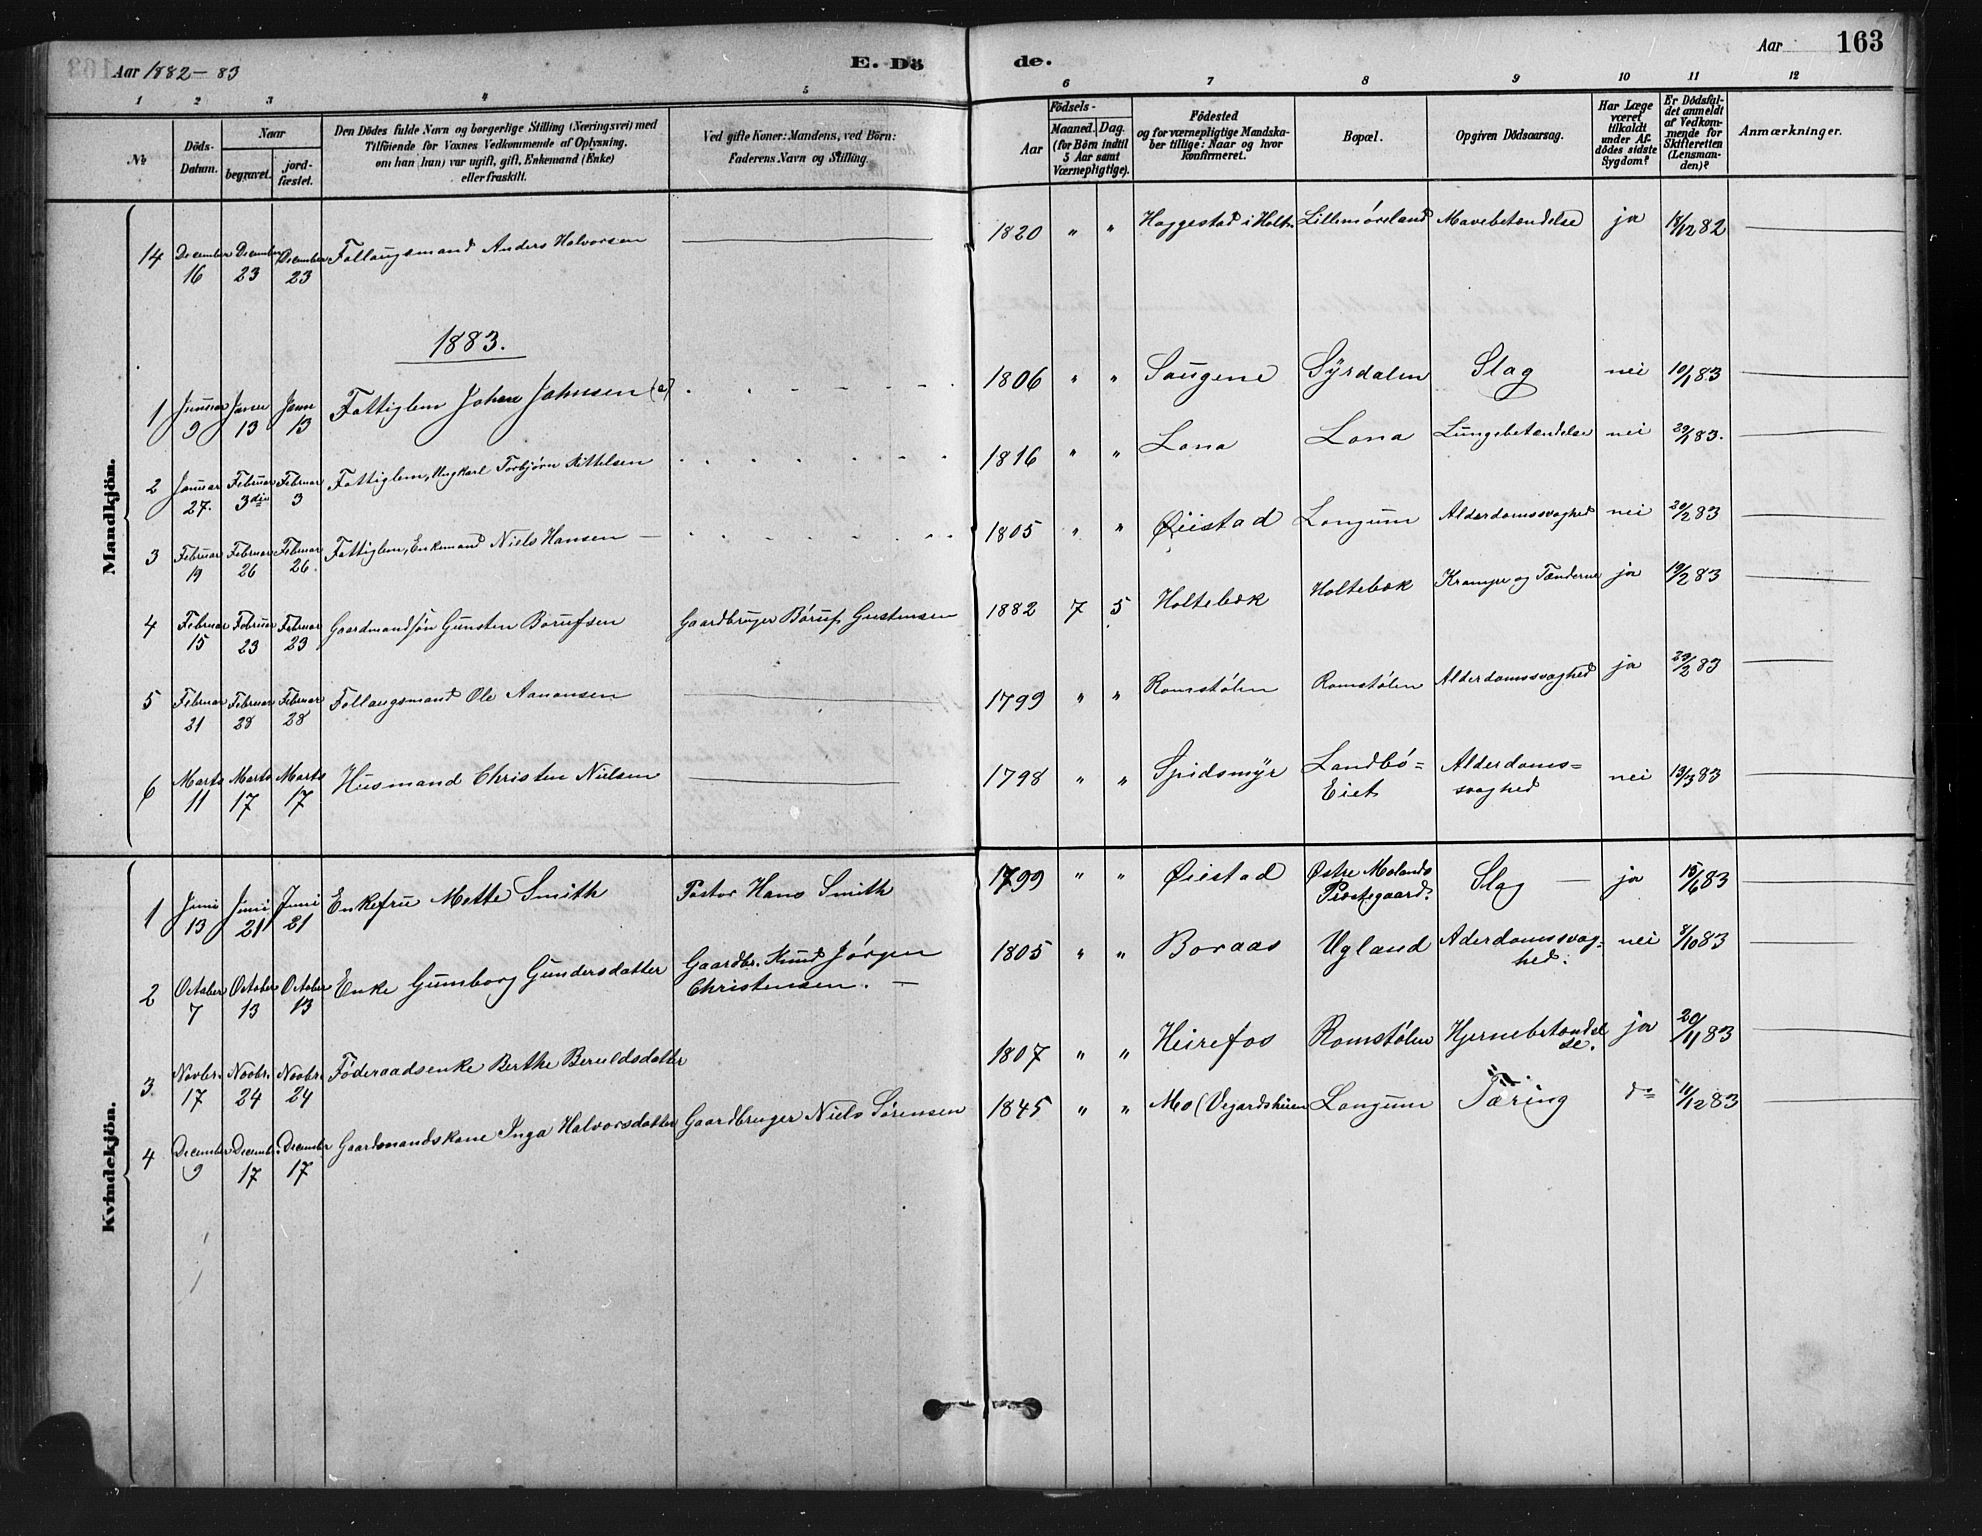 Aar 1882-83
E. Dö
de.
Aar
163
1 2 3 4 5 6 7 8 9 10 11 12
No
Döds-
Datum.
Naar
begravet.
jord-
fæstet.
Den Dödes fulde Navn og borgerlige Stilling (Næringsvei) med
Tilföiende for Voxnes Vedkommende af Oplysning.
om han (hun) var ugift, gift, Enkemand (Enke)
eller fraskilt.
Ved gifte Koner: Mandens, ved Börn:
Faderens Navn og Stilling.
Födsels-
Aar
Maaned. Dag.
(for Börn indtil
5 Aar samt
Værnepligtige).
Födested
og for værnepligtige Mandska-
ber tillige: Naar og hvor
konfirmeret.
Bopæl.
Opgiven Dödsaarsag.
Har Læge
været
tilkaldt
under Af-
dödes sidste
Sygdom?
Er Dödsfal-
det anmeldt
af Vedkom-
mende for
Skifteretten
(Lensman-
den)?
Anmærkninger.
Mandkjön.
14 December 16 December 23 December 23 Follaugsmand Anders Halvorsen 1820 " " Haggestad i Holt. Lillemøreland Mavebetændelse ja 18/12 82
1883.
1 Januar 9 Janu 13 Janu 13 Fattiglem Johan Johnsen (a) 1806 " " Saugene Syrdalen Slag nei 10/1 83
2 Januar 27. Februar 3die Februar 3 Fattiglem, Ungkarl Torbjørn Kittelsen 1816 " " Lona Lona Lungebetændelse nei 29/1 83.
3 Februar 19 Februar 26 Februar 26. Fattiglem, Enkemand Niels Hansen 1805 " " Øiestad Longum Alderdomssvaghed nei 20/2 83
4 Februar 15 Februar 23 Februar 23 Gaardmandsøn Gunsten Børufsen Gaardbruger Børuf Gustensen 1882 7 5 Holtebæk Holtebæk Krampe og Tænderne ja 19/2 83
5 Februar 21 Februar 28 Februar 28 Follaugsmand Ole Aanonsen 1799 " " Romstølen Romstølen Alderdomssvaghed ja 23/2 83
6 Marts 11 Marts 17 Marts 17 Husmand Christen Nielsen 1798 " " Spidsmyr Landbø=
Eiet Alderdoms=
svaghed nei 13/3 83
Kvindekjön.
1 Juni 13 Juni 21 Juni 21 Enkefru Mette Smith Pastor Hans Smith 1799 " " Øiestad Østre Molands
Præstegaard. Slag ja 15/6 83
2 October 7 October 13 October 13 Enke Gunborg Gundersdatter Gaardbr. Knud Jørgen
Christensen. 1805 " " Boraas Ugland Aderdomssvag-
hed. nei 8/10 83
3 Novbr. 17 Novbr. 24 Novbr. 24 Føderaadsenke Berthe Beruldsdatter 1807 " " Heirefos Romstølen Hjernebetændel
se. ja 20/11 83
4 December 9 Decembr. 17 December 17 Gaardmandskone Inga Halvorsdatter Gaardbruger Niels Sørensen 1845 " " Mo (Vegardsheien Longum Tæring do 11/12 83